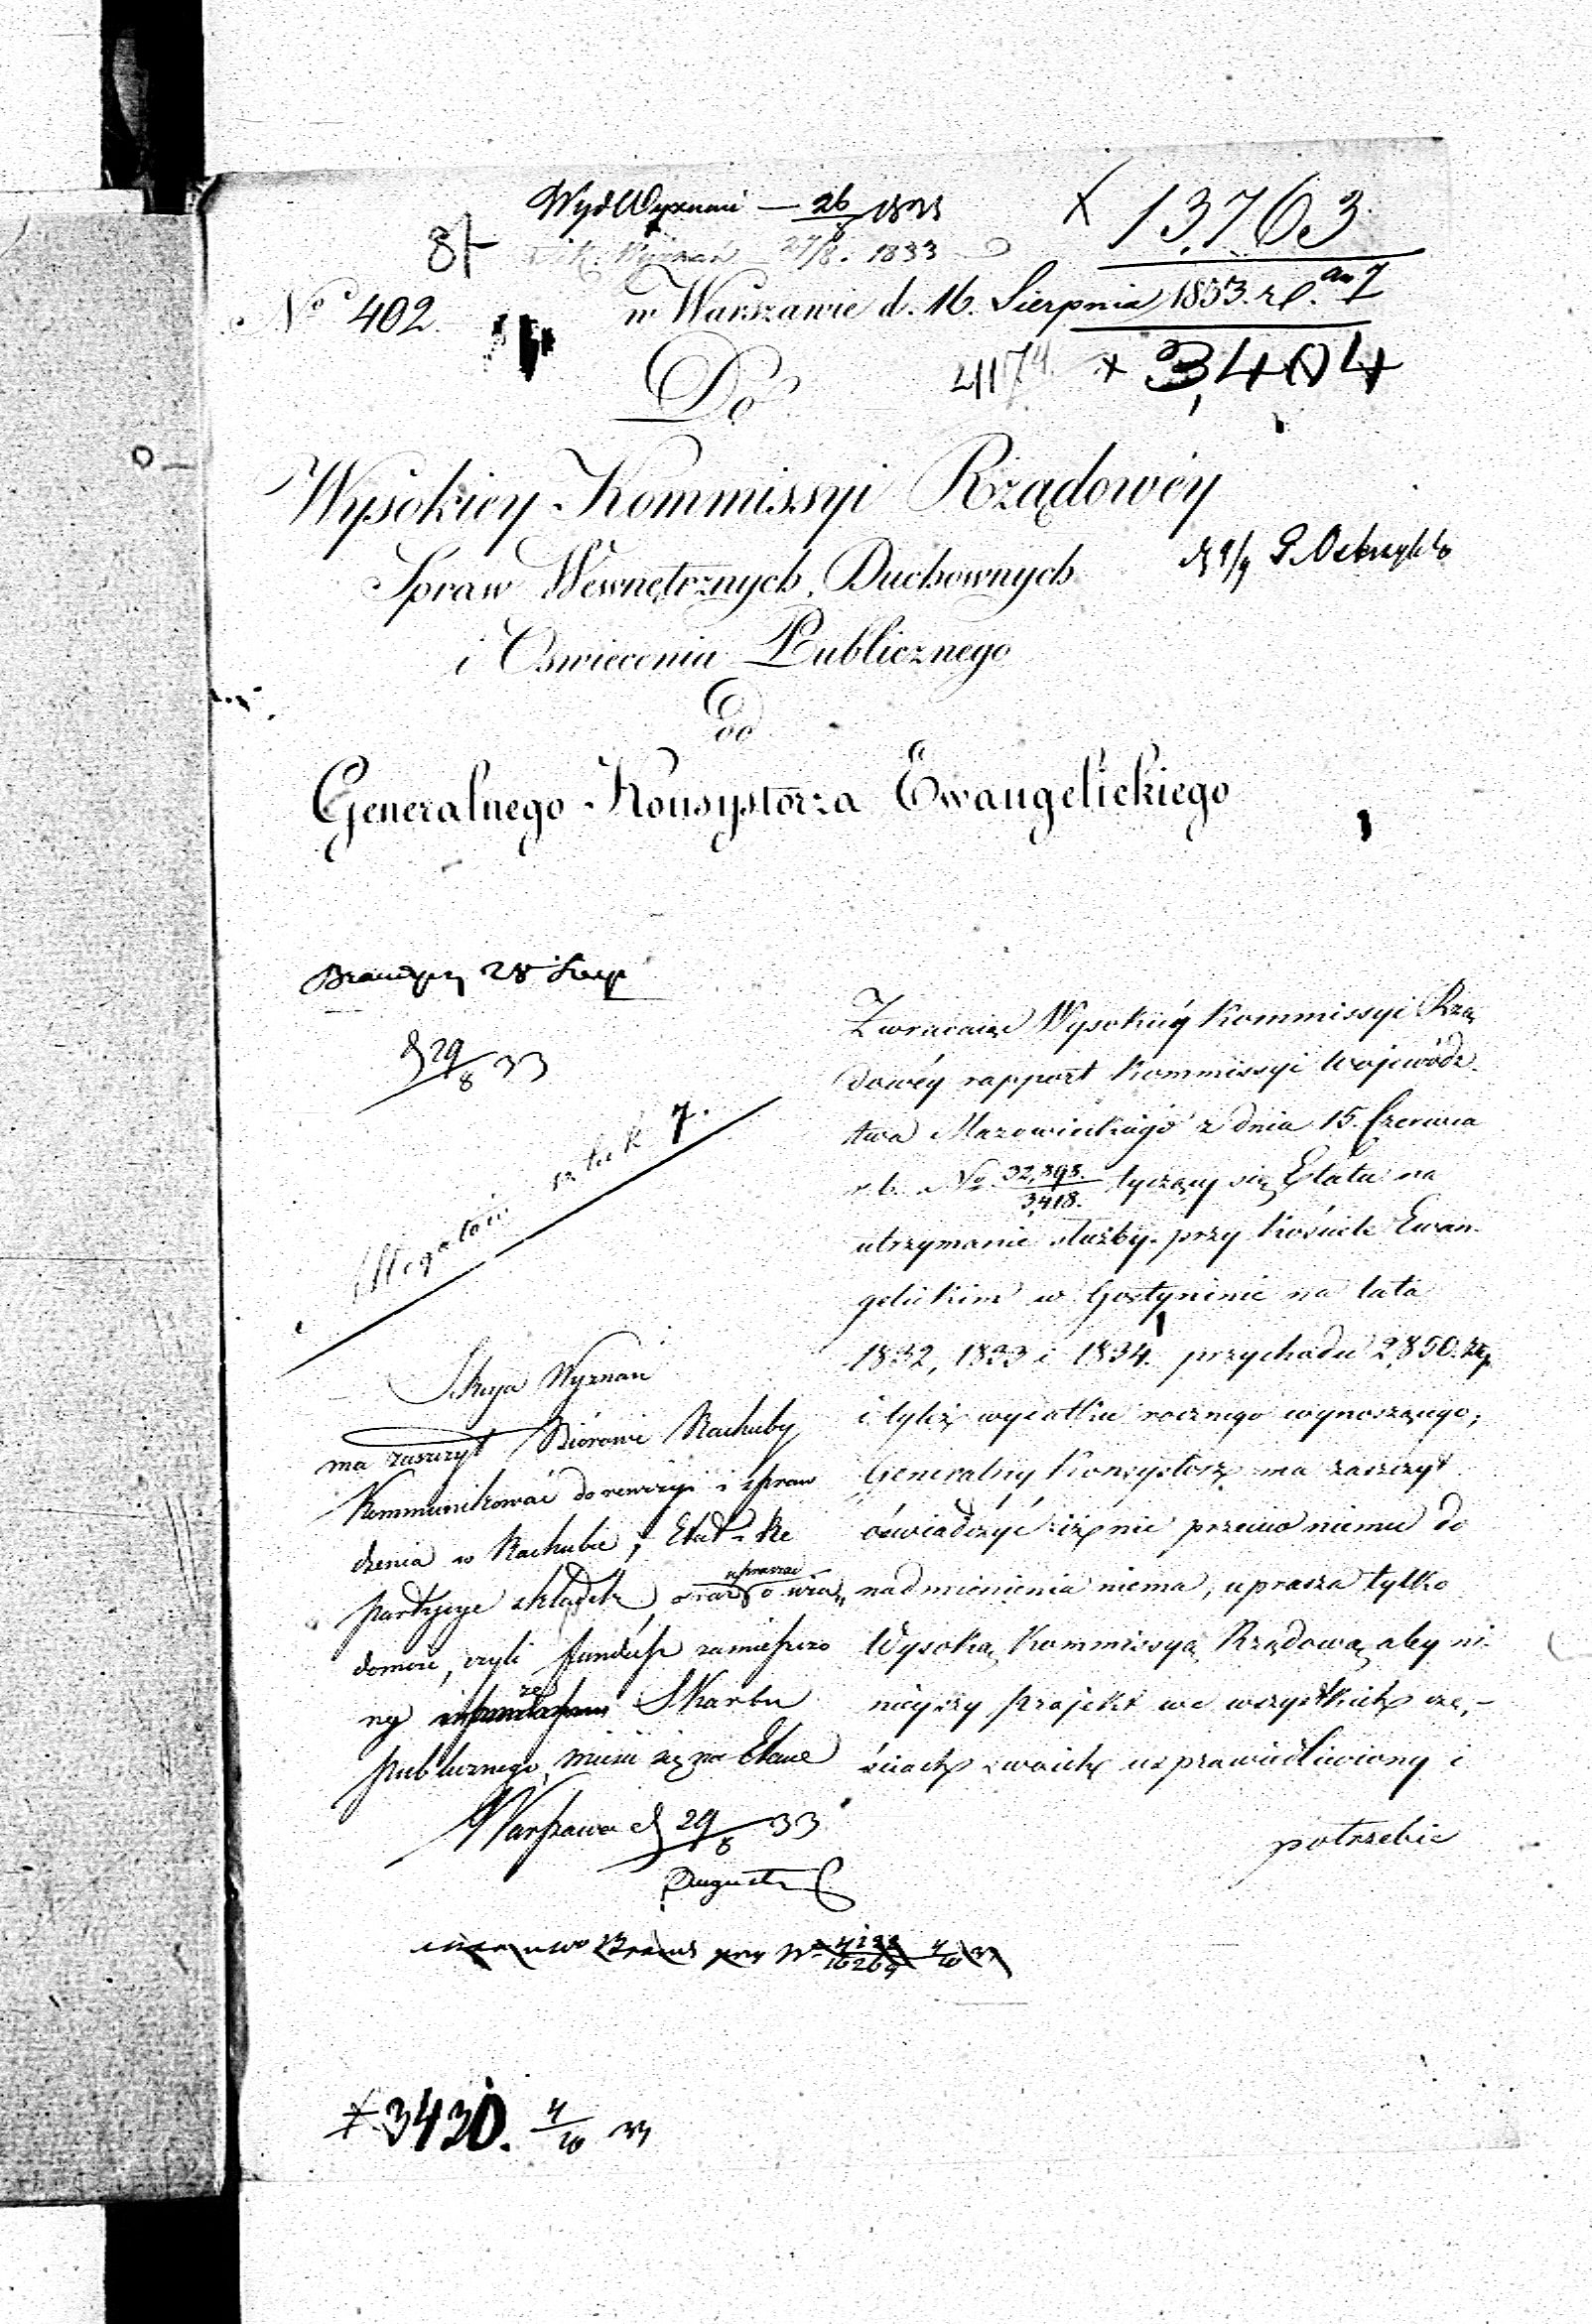 Wyd Wyznań — 26/8 1833
X 13,763
81
27/8. 1833
No 402.
w Warszawie d. 16. Sierpnia 1833. r.
4174. x 3,404
Do
Wysokiey Kommissyi Rządowéy
Spraw Wewnętrznych, Duchownych
i Oswiecenia Publicznego
Od
Generalnego Konsystorza Ewangelickiego
28 Sierp
d 29/8 33
Allegatów sztuk 7.
Zwracaiąc Wysokiéy Kommissyi Rzą
dowéy rapport Kommissyi Wojewódz-
twa Mazowieckiego z dnia 15. Czerwca
r. b. No 32,393./3,418. tyczący się Etatu na
utrzymanie służby przy Kościele Ewan-
gelickim w Gostyninie na lata
1832, 1833 i 1834. przychodu 2,850. Złp
i tyleż wydatku rocznego wynoszącego,
Generalny Konsystorz ma zaszczyt
oświadczyć iż nic przeciw niemu do
nadmienienia niema, uprasza tylko
Wysoką Kommissyą Rządową, aby ni-
nieyszy projekt we wszystkich czę-
ściach swoich usprawiedliwiony i
potrzebie
Sekcya Wyznań
ma zaszczyt Biórowi Rachuby
Kommunikować do rewizyi i spraw
dzenia w Rachubie, Etat i Re
partycye składek, oraz uprasza o wia
domość, czyli fundusz zamieszczo
ny ze Skarbu
publicznego, mieści się na Etacie
Warszawa d 29/8 33
No 4122/16269 4/10 33
x 3430. 4/10 33